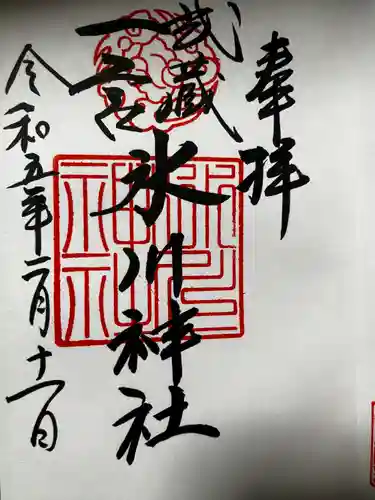 奉拝
武蔵
一之宮
氷川神社
令和五年二月十一日